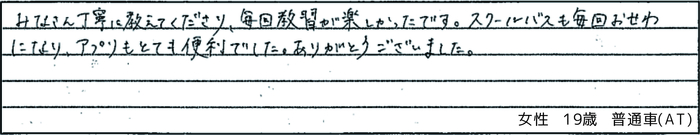 みなさん丁寧に教えてくださり、毎回教習が楽しかったです。スクールバスも毎回おせわ
になり、アプリもとても便利でした。ありがとうございました。
女性　19歳　普通車(AT)